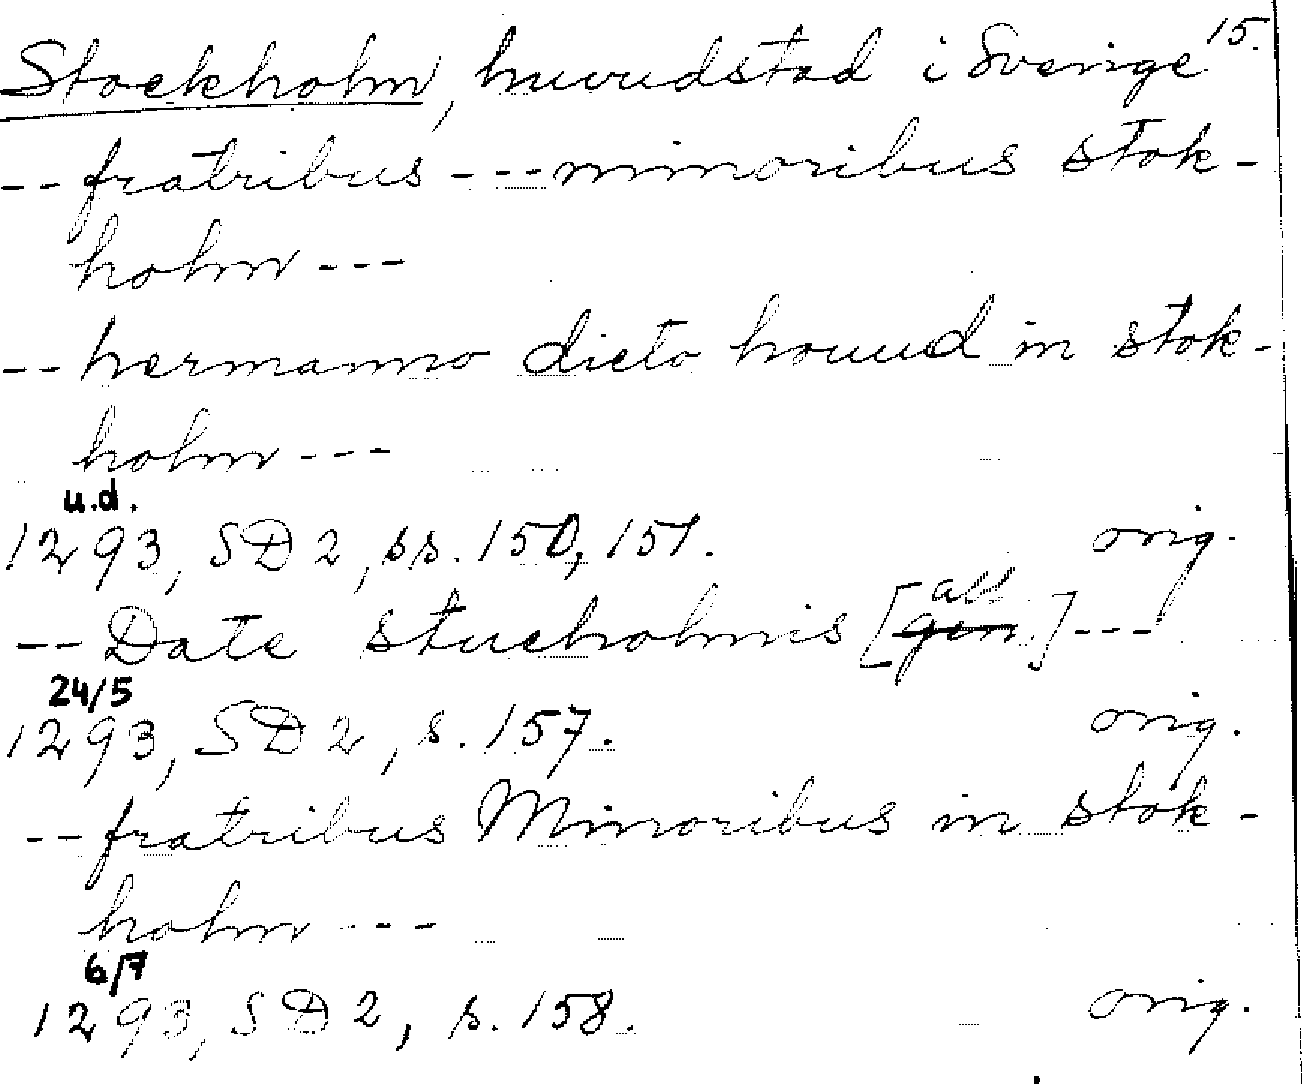 Stockholm, huvudstad i Sverige 15.
-- fratribus --- minoribus stok-
holm ---
-- hermanno dicto houud in stok-
holm ---
u.d.
1293, SD 2, ss. 150, 151. orig.
-- Date stucholmis [gen. abl.] ---
24/5
1293, SD 2, s. 157. orig.
-- fratribus Minoribus in stok-
holm ---
6/7
1293, SD 2, s. 158. orig.